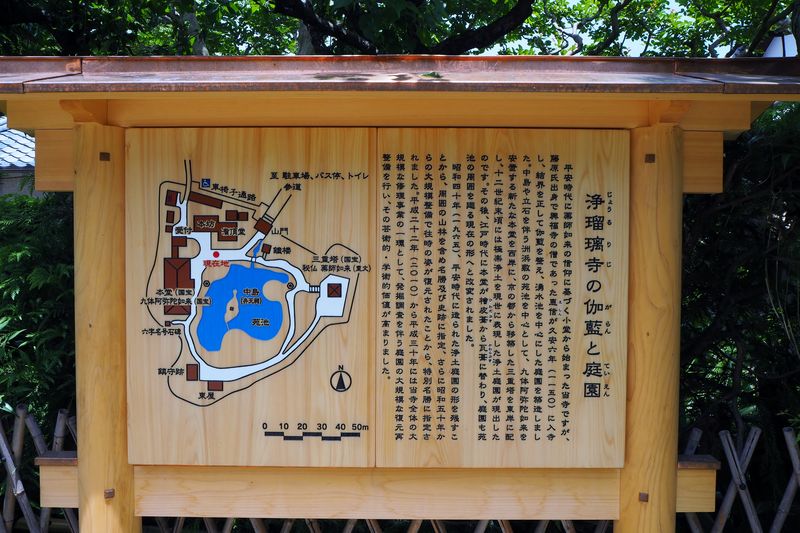 じょうるりじ がらん ていえん
浄瑠璃寺の伽藍と庭園
平安時代に薬師如来の信仰に基づく小堂から始まった当寺ですが、
藤原氏出身で興福寺の僧であった恵信が久安六年(一一五〇)に入寺
し、結界を正して伽藍を整え、湧水池を中心にした庭園を築造しまし
た。中島や立石を伴う洲浜敷の苑池を中心として、九体阿弥陀如来を
安置する新たな本堂を西岸に、京の都から移築した三重塔を東岸に配
し、十二世紀末頃には極楽浄土を現世に表現した浄土庭園が現出した
のです。その後、江戸時代に本堂が檜皮葺から瓦葺に替わり、庭園も苑
池の周囲を廻る現在の形へと改変されました。
昭和四十年(一九六五)、平安時代に造られた浄土庭園の形を残すこ
とから、周囲の山林を含め名勝及び史跡に指定、さらに昭和五十年か
らの大規模整備で往時の姿が復元されたことから、特別名勝に指定さ
れました。平成二十二年(二〇一〇)から平成三十年には当寺全体の大
規模な修理事業の一環として、発掘調査を伴う庭園の大規模な復元再
整備を行い、その芸術的・学術的価値が高まりました。
至 駐車場、バス停、トイレ
参道
車椅子通路
本坊
受付
灌頂堂
山門
鐘楼
現在地
三重塔(国宝)
秘仏 薬師如来(重文)
本堂(国宝)
九体阿弥陀如来(国宝)
中島
(弁天祠)
苑池
六字名号石碑
鎮守跡
東屋
N
0 10 20 30 40 50m